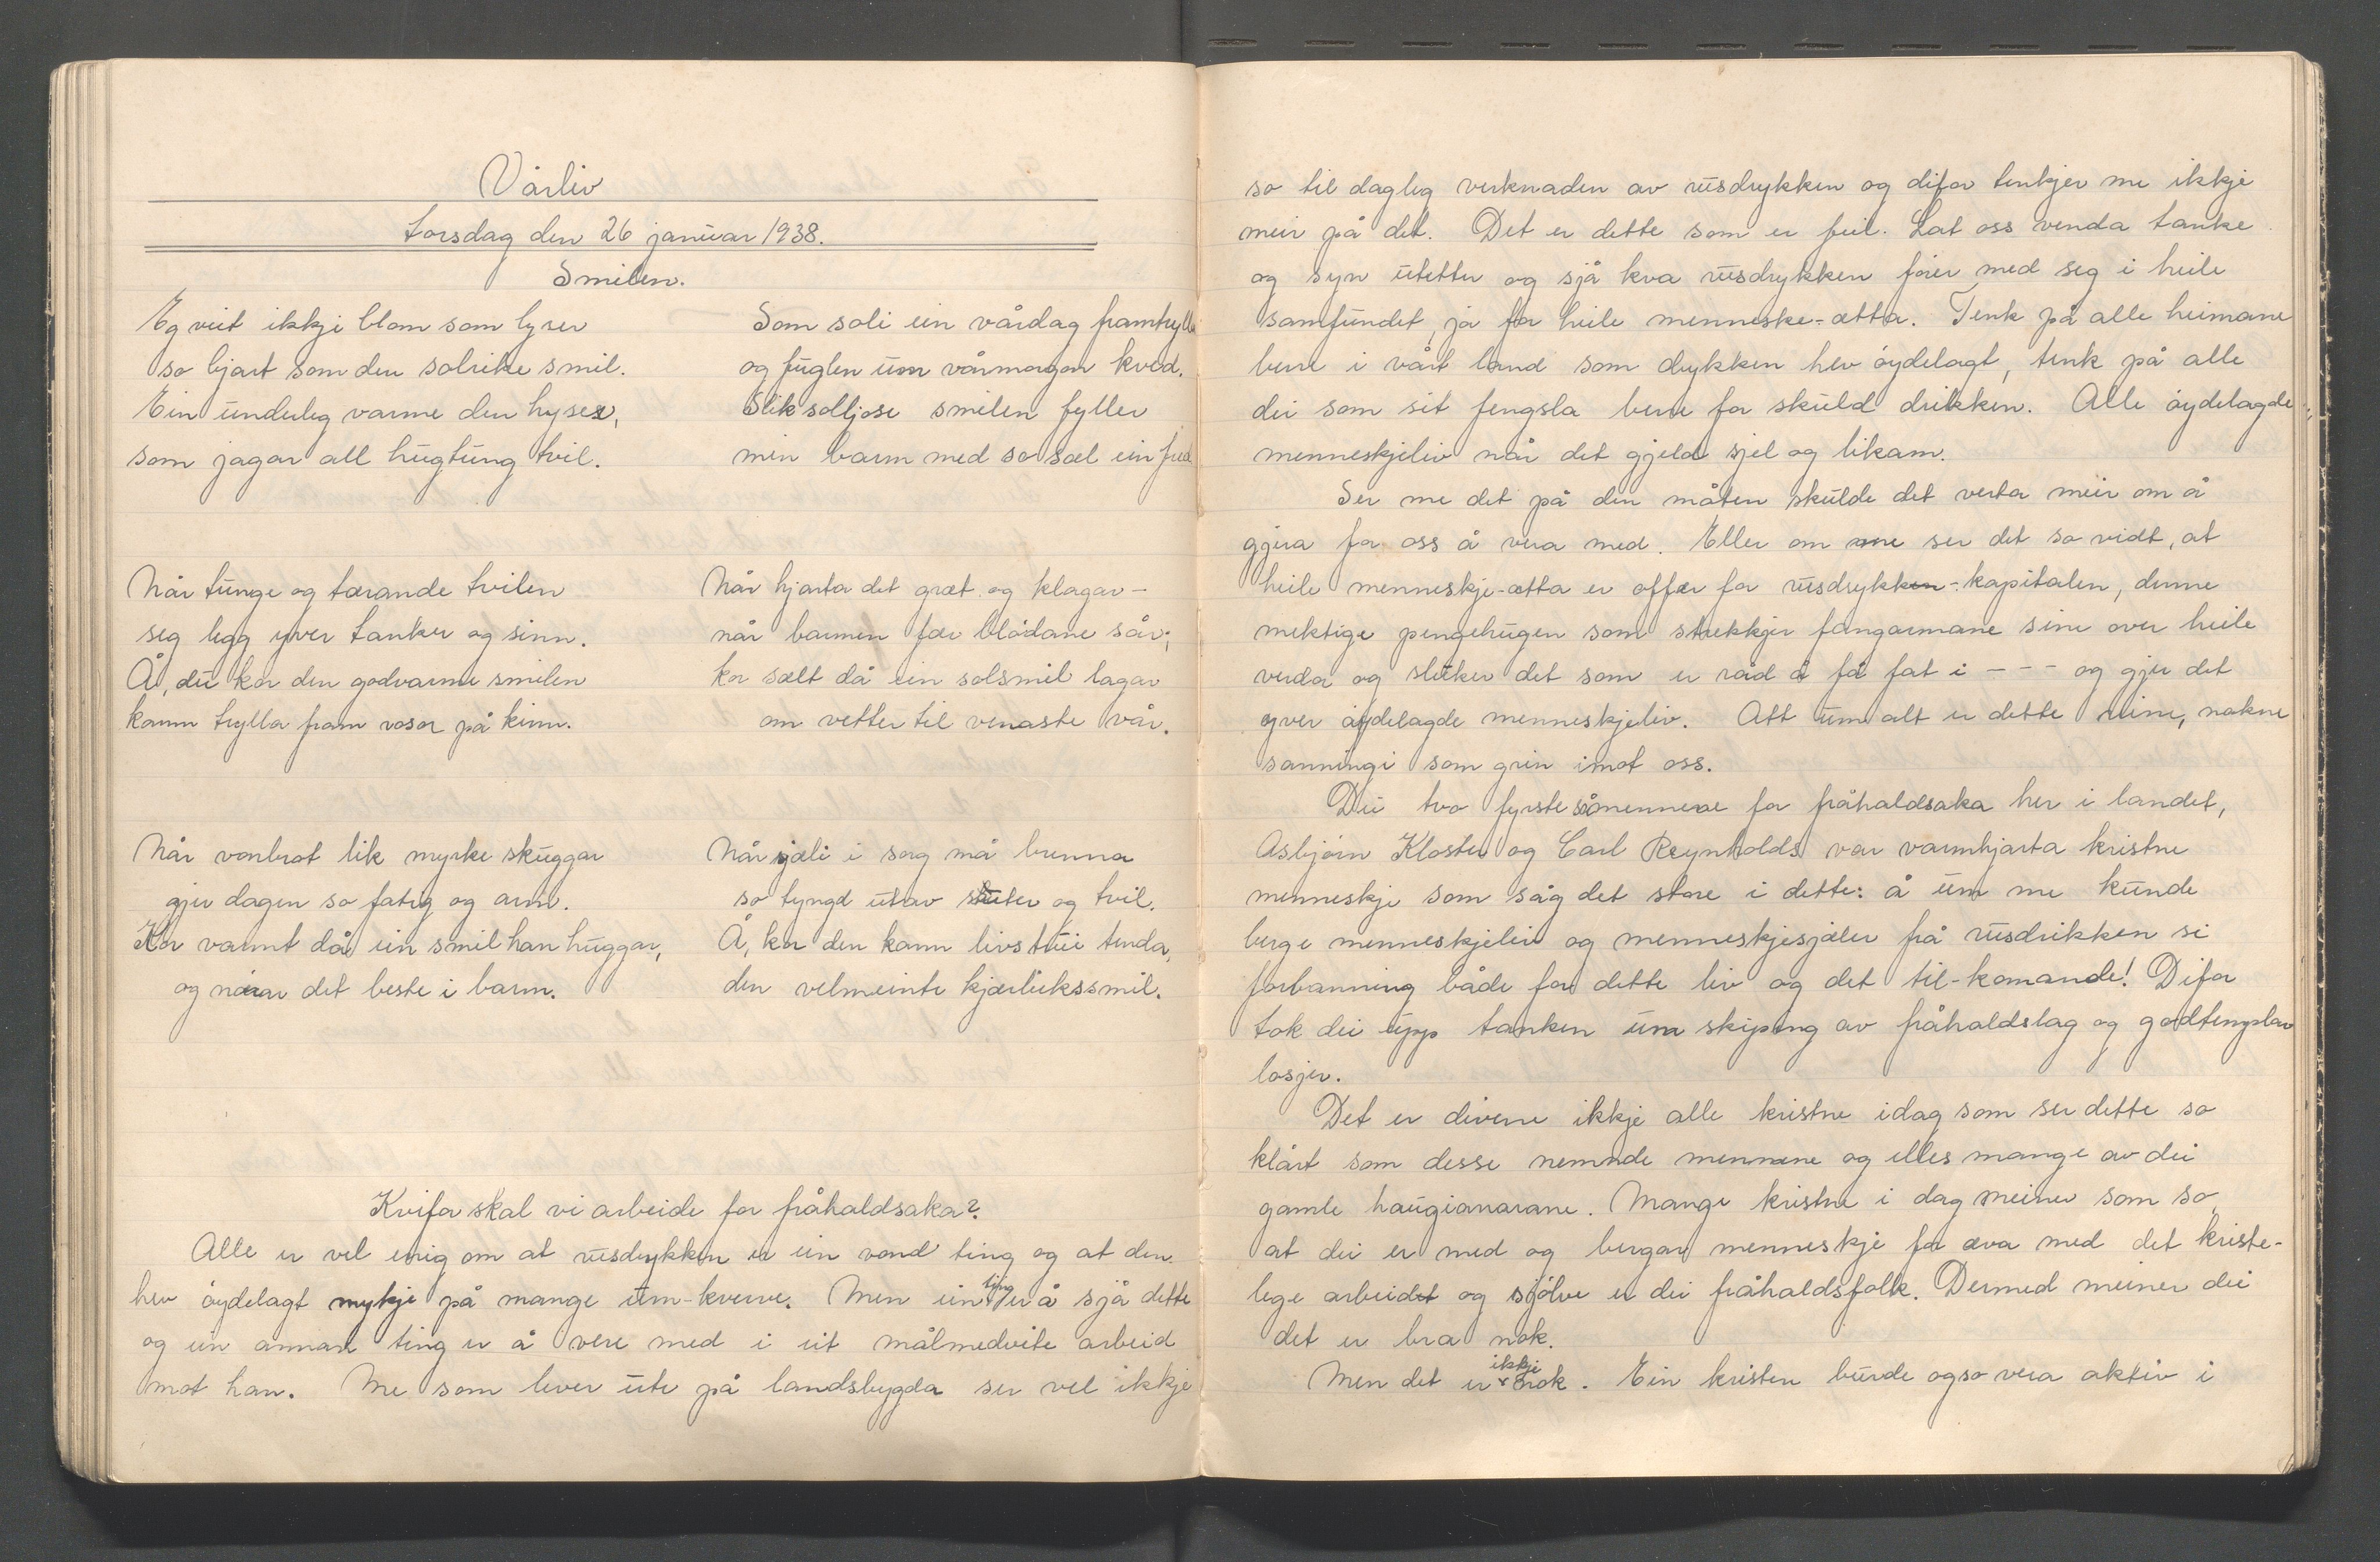 Vårliv
torsdag den 26 januar 1938.
Smilen.
Eg veit ikkje blom som lyser
so bjart som den solrike smil.
Ein underleg varme den hyser,
som jagar all hugtung tvil.
Når tunge og tærande tvilen
seg legg yver tanker og sinn.
Å, du kor den godvarme smilen
kann trylla fram rosor på kinn.
Når vonbrot lik myrke skuggar
gjer dagen so fatig og arm.
Kor varmt då ein smil han huggar,
og nærar det beste i barm.
Som soli ein vårdag framtryll
og fuglen um vårmorgon kved.
Slik solljose smilen fyller
min barm med so sæl ein fred
Når hjarta det græt og klagar –
når barmen fær blødane sår;
kor sælt då ein solsmil lagar
om vetter til venaste vår.
Når sjæli i sorg må brenna
so tyngd utav suter og tvil.
Å, kor den kann livstrui tenda,
den velmeinte kjærleikssmil.
Kvifor skal vi arbeide for fråhaldsaka?
Alle er vel enig om at rusdrykken er ein vond ting og at den
hev øydelagt mykje på mange um-kverve. Men ein ting er å sjå dette
og ein annan ting er å vere med i eit målmedvite arbeid
mot han. Me som lever ute på landsbygda ser vel ikkje
so til dagleg verknaden av rusdrykken og difor tenkjer me ikkje
meir på det. Det er dette som er feil. Lat oss venda tanke
og syn utetter og sjå kva rusdrykken fører med seg i heile
samfundet, ja for heile menneske-ætta. Tenk på alle heimane
berre i vårt land som drykken hev øydelagt, tenk på alle
dei som sit fengsla berre for skuld drikken. Alle øydelagde
menneskjeliv når det gjeld sjel og likam.
Ser me det på den måten skulde det verta meir om å
gjera for oss å vera med. Eller om me ser det so vidt, at
heile menneskje-ætta er offer for rusdrykken-kapitalen, denne
mektige pengehugen som strekkjer fangarmane sine over heile
verda og sluker det som er råd å få fat i – – – og gjer det
yver øydelagde menneskjeliv. Att um alt er dette reine, nakne
sanningi som grin imot oss.
Dei tvo fyrste såmennene for fråhaldsaka her i landet,
Asbjørn Kloster og Carl Reynholds var varmhjarta kristne
menneskje som såg det store i dette: å um me kunde
berge menneskjeliv og menneskjesjæler frå rusdrikken si
forbanning både for dette liv og det til-komande! Difor
tok dei upp tanken um skiping av fråhaldslag og godtemplar
losjer.
Det er diverre ikkje alle kristne idag som ser dette so
klårt som desse nemnde mennene og elles mange av dei
gamle haugianarane. Mange kristne i dag meiner som so
at dei er med og bergar menneskje for æva med det kriste-
lege arbeidet og sjølve er dei fråhaldsfolk. Dermed meiner dei
det er bra nok.
Men det er ikkje nok. Ein kristen burde ogso vera aktiv i